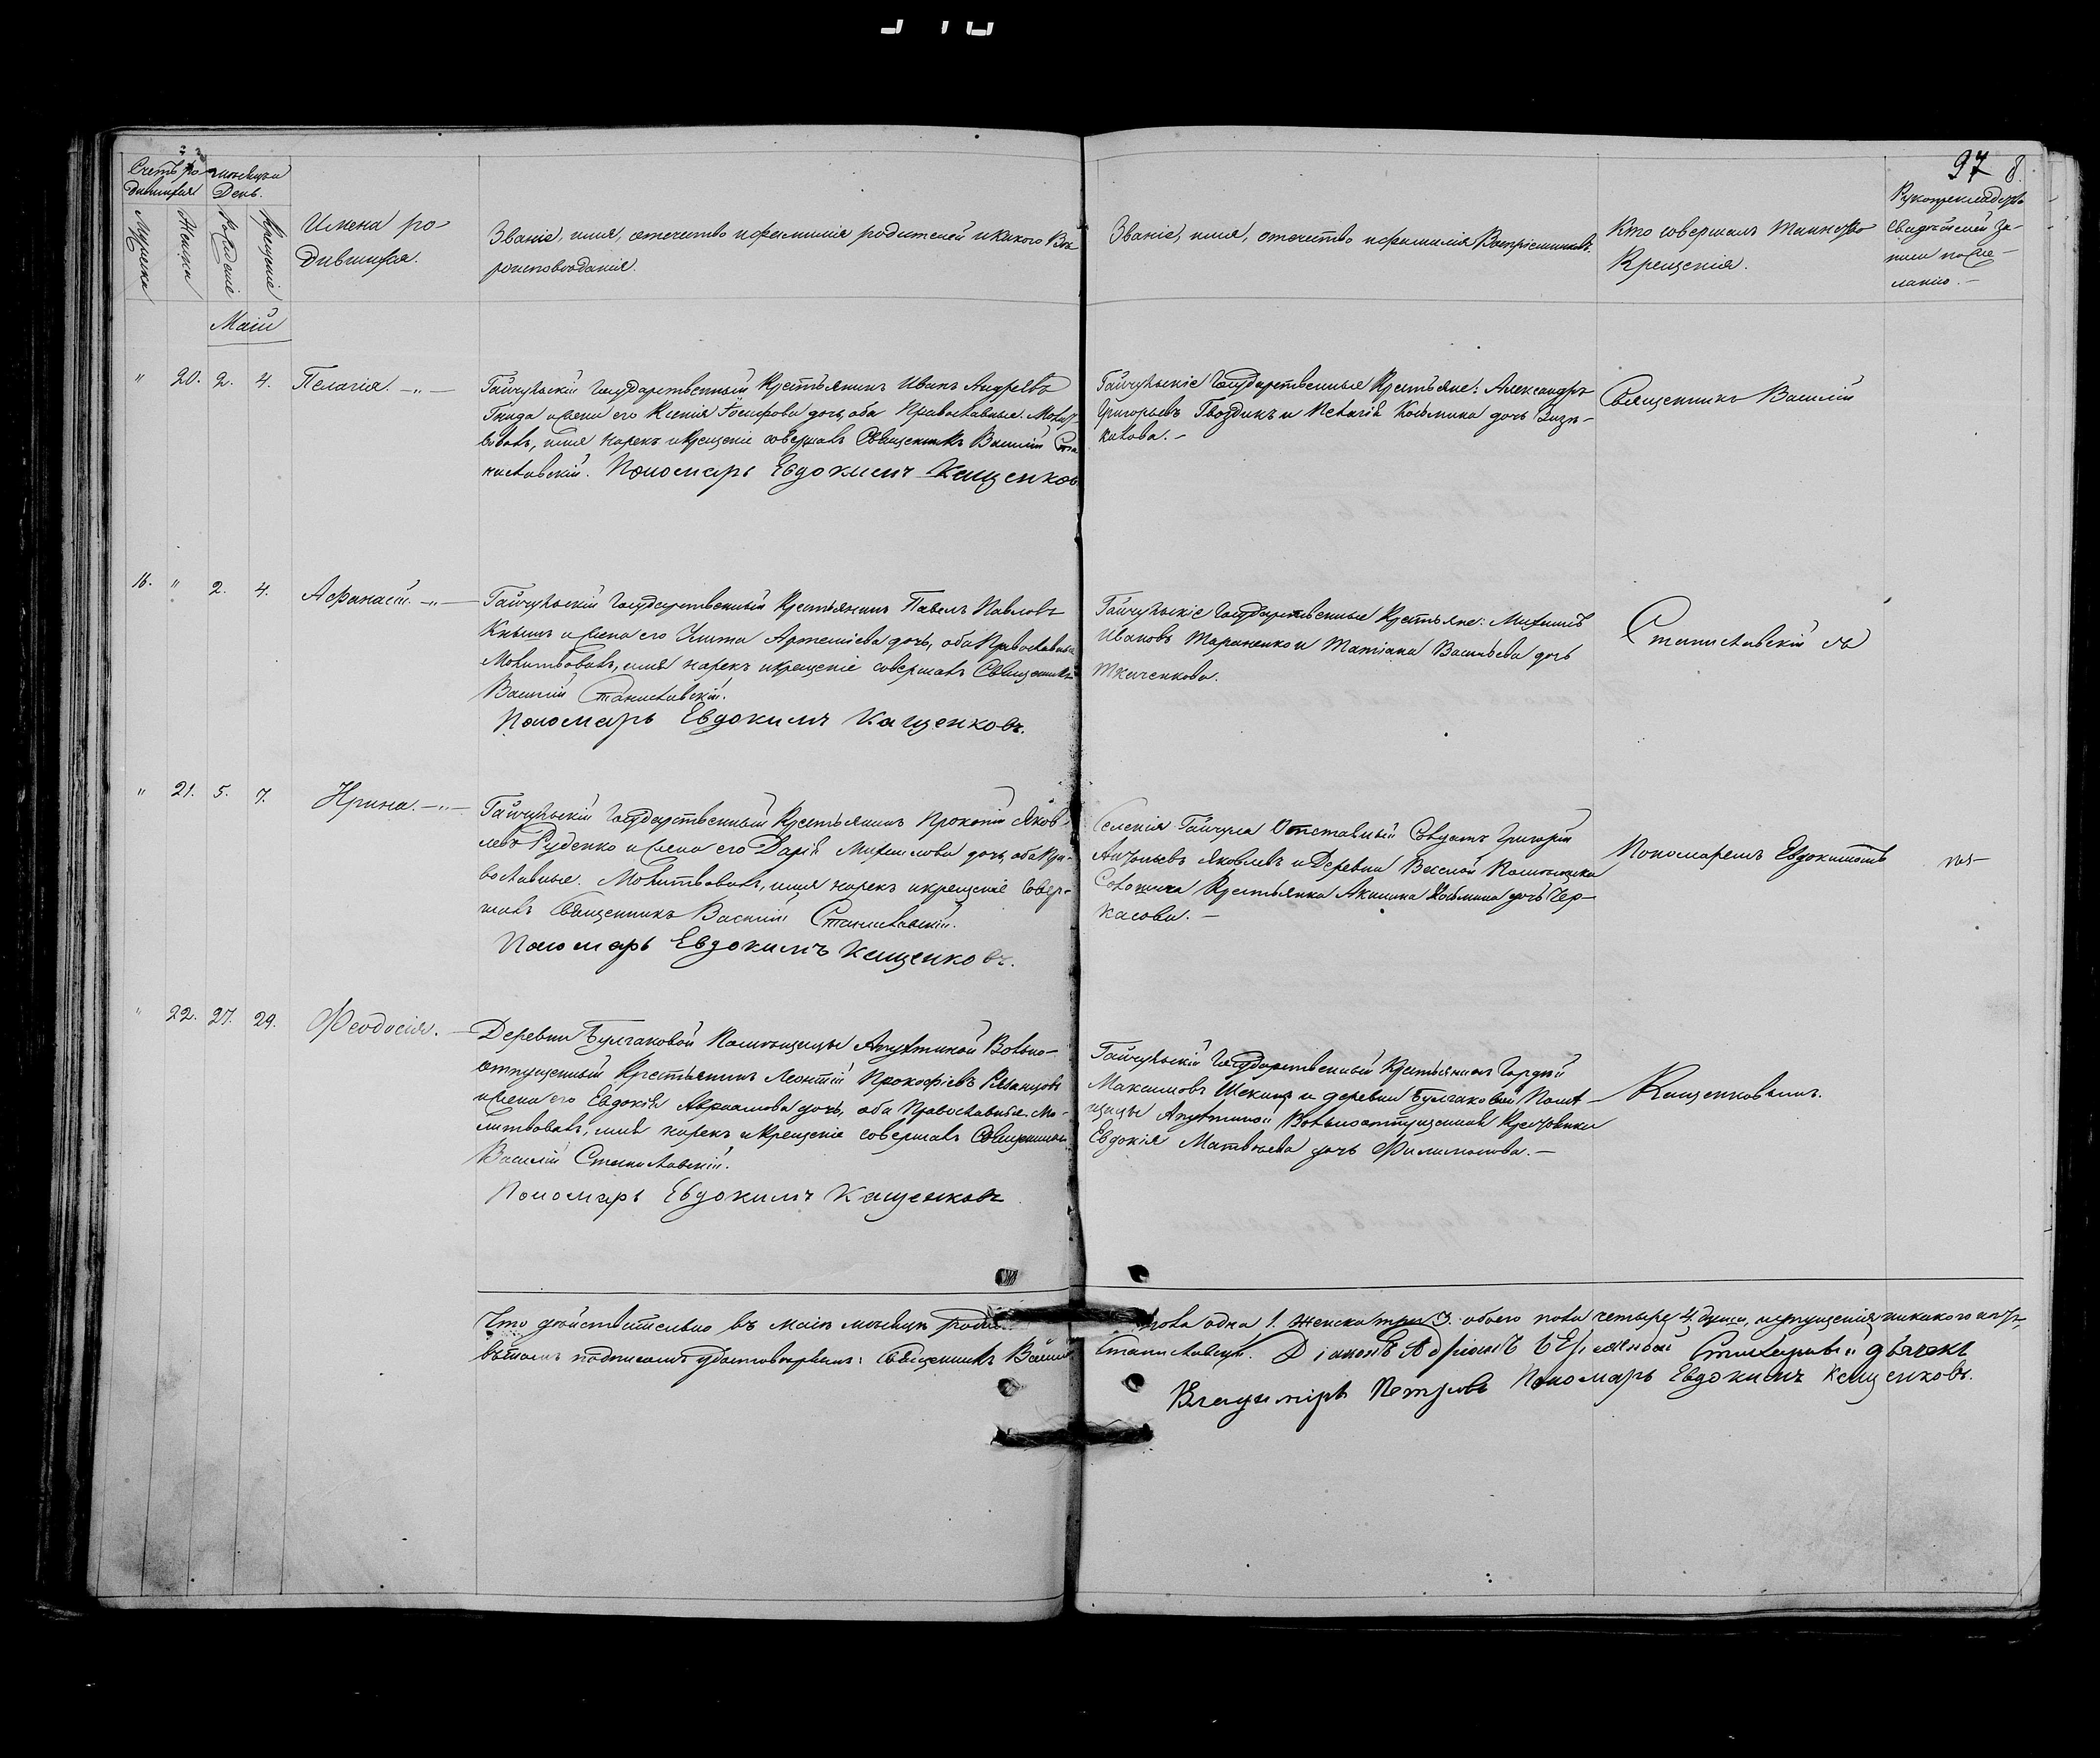 97 8.
Счетъ ро- мѣсяцъ и
дившихся День.
Мужеска
Женска
Рожденіе
Крещеніе
Имена ро-
дившихся.
Званіе, имя, отечество и фамилія родителей и какого Вѣ
роисповѣданія.
Званіе, имя, отечество и фамилія Воспріемниковъ.
Кто совершалъ таинство
Крещенія.
Рукоприкладство
свидѣтелей за-
писи по же-
ланію.
Маій
" 20. 2. 4. Пелагія.
Гайчульскій Государственный Крестьянинъ Иванъ Андреевъ
Гнида и жена его Ксенія Іосифова дочь, оба Православные. Молит-
вовалъ, имя нарекъ и крещеніе совершалъ Священникъ Василій Ста
ниславскій. Пономарь Евдокимъ Кащенков
Гайчульскіе Государственные Крестьяне: Александръ
Григорьевъ Гвоздикъ и Пелагія Косьмина дочь
Священникъ Василій
16. " 2. 4. Афанасій.
Гайчульскій Государственный Крестьянинъ Павелъ Павловъ
Книшъ и жена его Улита Артеміева дочь, оба Православные
Молитвовалъ, имя нарекъ и крещеніе совершалъ Священникъ
Василій Станиславскій.
Пономарь Евдокимъ Кащенковъ.
Гайчульскіе Государственные Крестьяне: Михаилъ
Ивановъ Тараненко и Татіана Васильева дочь
Ткаченкова.
Станиславскій съ
" 21. 5. 7. Ирина.
Гайчульскій Государственный Крестьянинъ Прокопій Яков-
левъ Руденко и жена его Дарія Михайлова дочь, оба Пра-
вославные. Молитвовалъ, имя нарекъ и крещеніе совер-
шалъ Священникъ Василій Станиславскій.
Пономарь Евдокимъ Кащенковъ.
Селенія Гайчула Отставный Солдатъ Григорій
Яковлевъ и Деревни Веселой Помѣщика
Крестьянка Акилина Косьмина дочь Чер-
касова.
Пономаремъ Евдокимомъ
" 22. 27. 29. Феодосія.
Деревни Булгаковой Помѣщицы Апухтиной Вольно-
отпущенный Крестьянинъ Леонтій Прокофіевъ Рязанцовъ
и жена его Евдокія Авраамова дочь, оба Православные. Мо-
литвовалъ, имя нарекъ и крещеніе совершалъ Священникъ
Василій Станиславскій.
Пономарь Евдокимъ Кащенковъ
Гайчульскій Государственный Крестьянинъ Гордѣй
Максимовъ и деревни Булгаковой Помѣ-
щицы Апухтиной Вольноотпущенная Крестьянка
Евдокія Матвѣева дочь Филимонова.
Кащенковымъ.
Что дѣйствительно въ маіѣ мѣсяцѣ роди
пола одна 1. женска три 3. обоего пола четыре 4. души, и упущенія никакого нѣтъ,
въ томъ подписомъ удостовѣряемъ: Священникъ Васил
Станиславскій. Діаконъ Адріанъ Стихарный дьячекъ
Владиміръ Петровъ Пономарь Евдокимъ Кащенковъ.